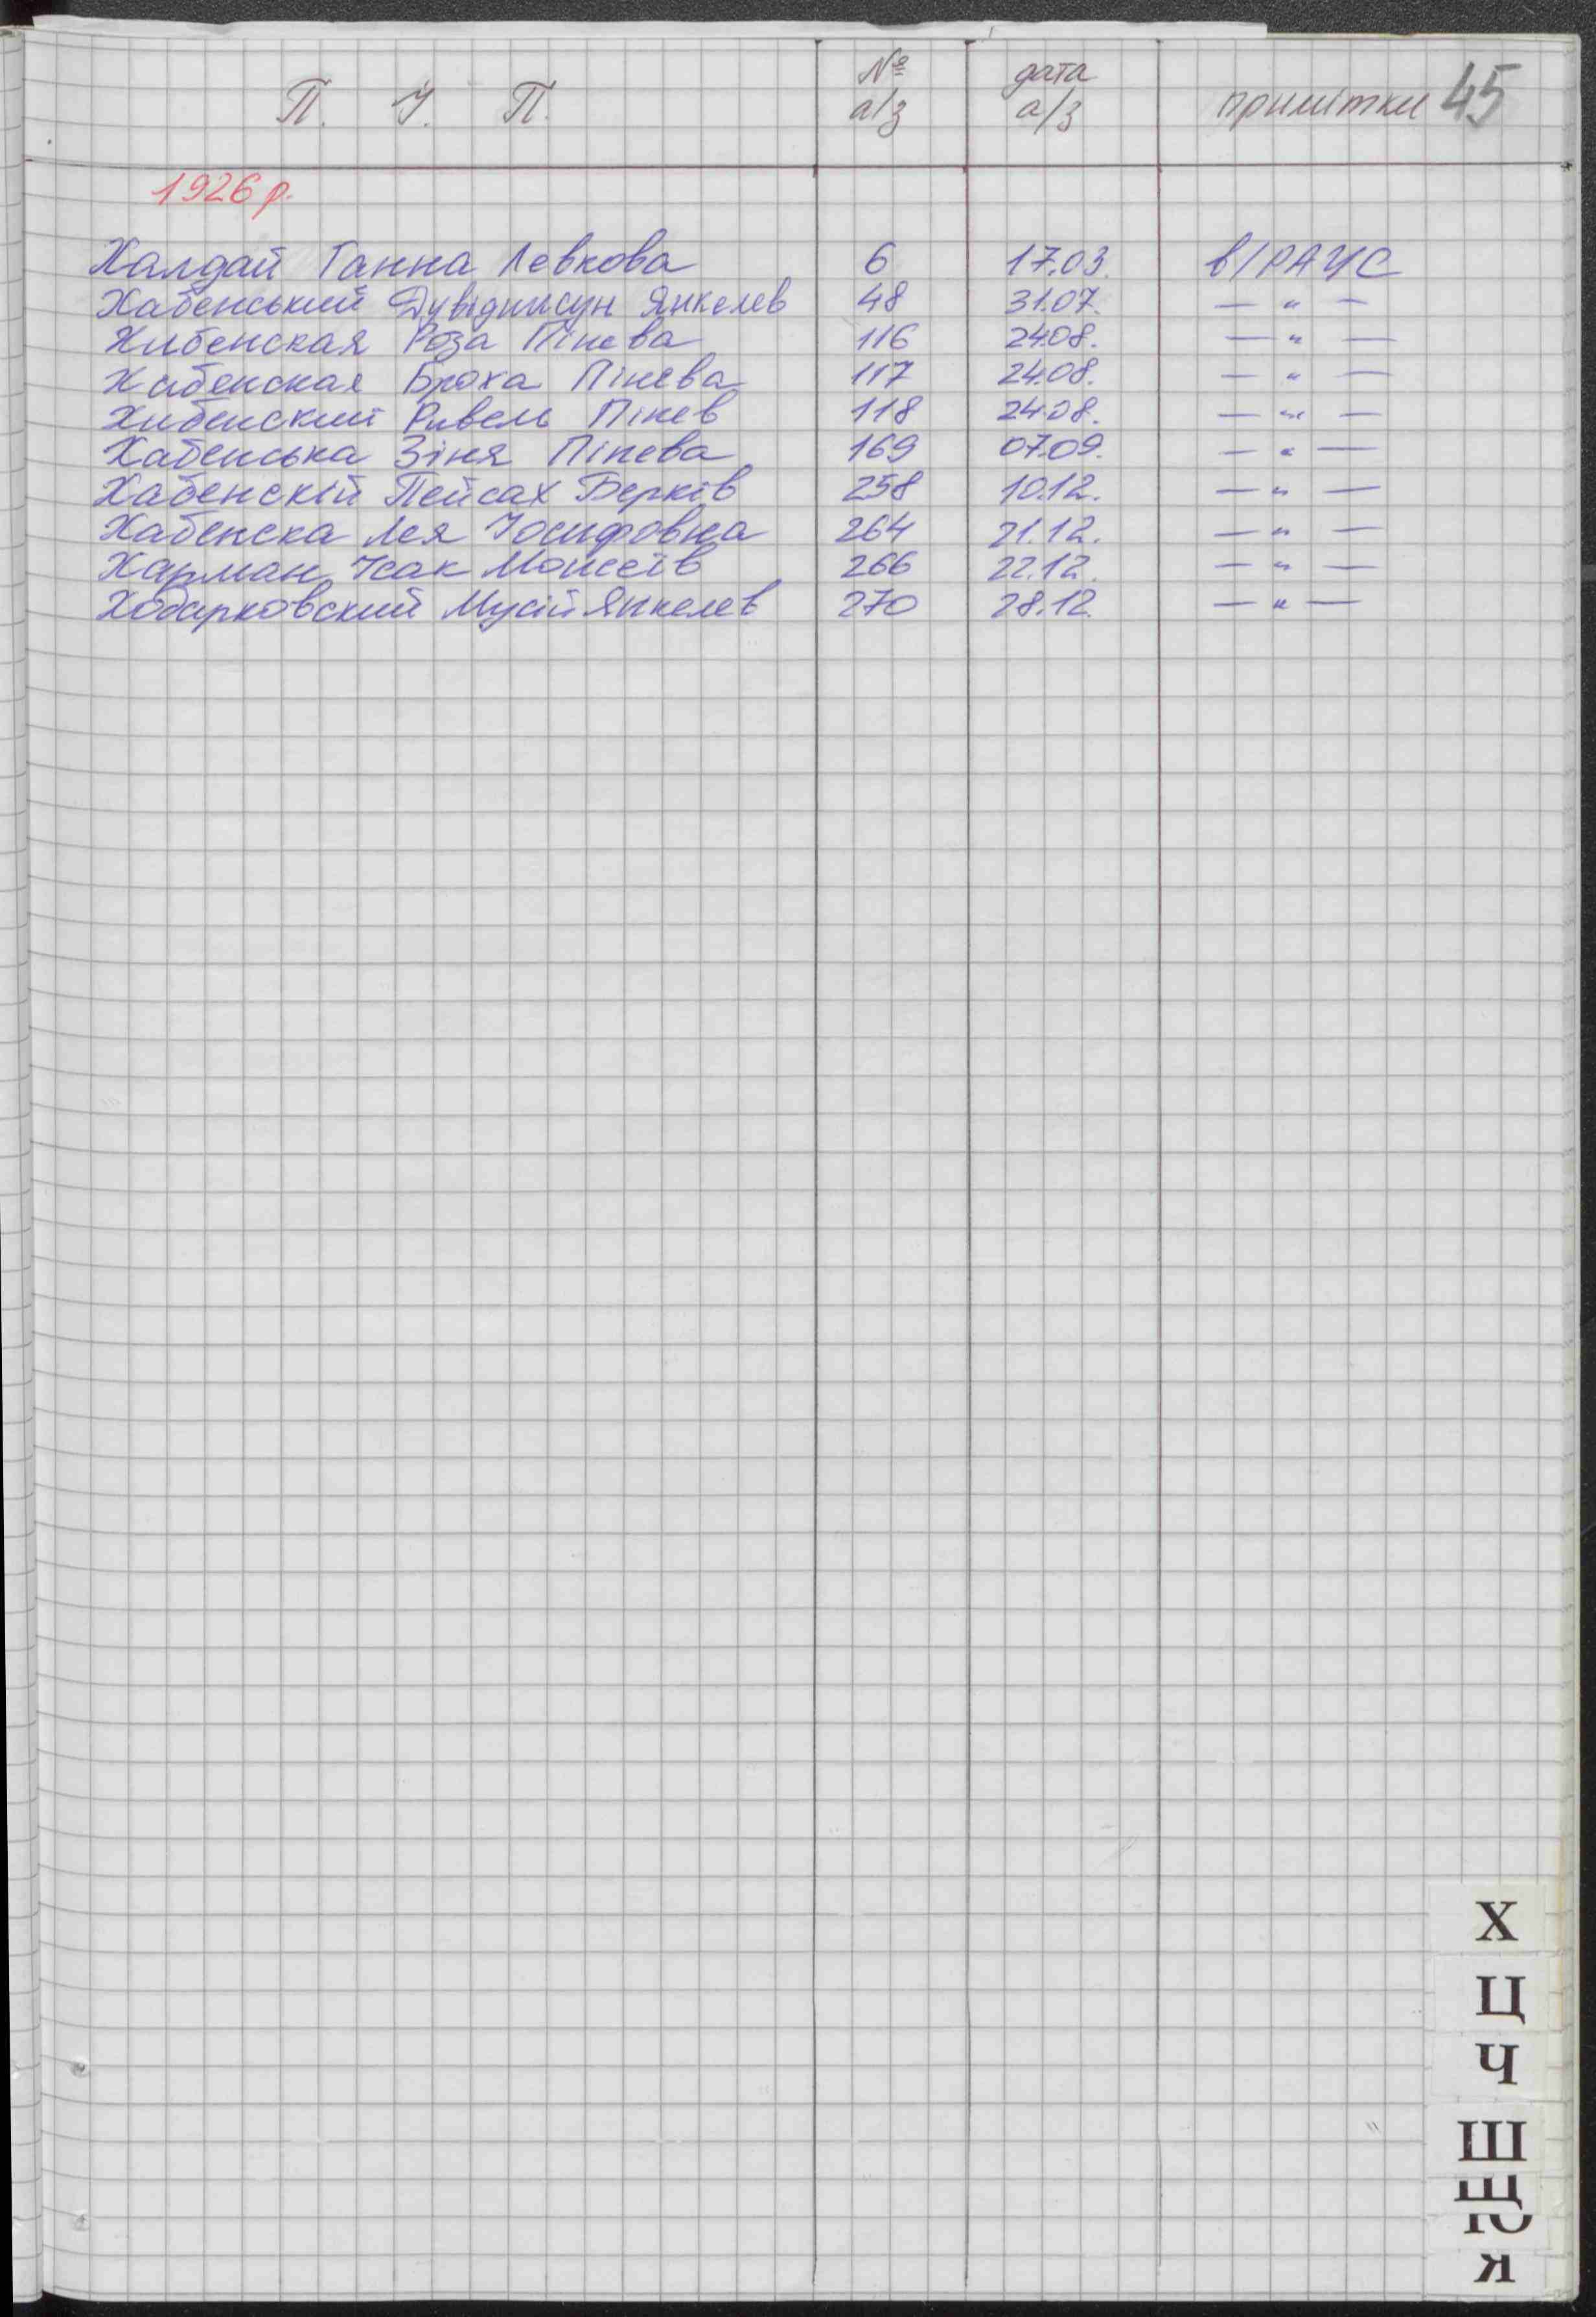 П. І. П. № а/з дата а/з примітки 45
1926 р.
Халдай Ганна Левкова 6 17.03. в/РАЦС
Хабенський Янкелев 48 31.07. — " —
Хабенская Роза Пінева 116 24.08. — " —
Хабенская Броха Пінева 117 24.08. — " —
Хабенский Ривель Пінев 118 24.08. — " —
Хабенська Зіня Пінева 169 07.09. — " —
Хабенскій Пейсах Берків 258 10.12. — " —
Хабенска Лея Йосифовна 264 21.12. — " —
Харман Ісак Мойсеїв 266 22.12. — " —
Ходарковский Мусій Янкелев 270 28.12. — " —
Х
Ц
Ч
Ш
Щ
Ю
Я